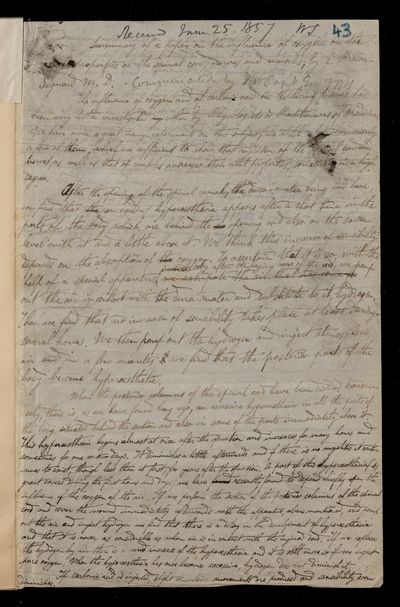 Received June 25. 1857 WS. 43
Summary of a paper on the influence of oxygen on the
properties of the spinal cord, nerves and muscles, by E. Brown-
Séquard M. D. - Communicated by
the influence of oxygen and of carbonic acid on the living tissues has
been very little investigated by Physiologists &
We have made a great many experiments on this subject, we will
a few of them, which are sufficient to show that
nerves as well as that of muscles increases their vital properties in a high
degree.
After the opening of the spinal canal, the dura-mater being laid bare,
we find that an evident hyperaesthesia appears after a short time in the
parts of the body which are behind the opening and also on the same
level with it and a little above it. We think this increase of sensibility
depends on the absorption of oxygen; to ascertain that it is so, with the
help of a special apparatus, immediately after the opening, we pump
out the air in contact with the dura-mater and substitute to it hydrogen.
Then we find that no increase of sensibility takes place at least during
several hours. We then pump out the hydrogen and inject atmospheric
air and in a few minutes we find that the posterior part of the
body become hyperaesthetic.
When the posterior columns of the spinal cord have been divided transver-
sely, there is, as we have found long ago, an excessive hyperaesthesia in all the parts of
the body situated behind the section and also in some of the parts immediately above it.
This hyperaesthesia begins almost at once after the section and increases for many hours and
sometimes for one or two days. It diminishes a little afterwards and if there is no myelitis it conti-
nues to exist, though less than at first, for years after the operation. A part of this hyperaesthesia, of
great excess during the first hours and days, we have recently found to depend simply upon the
influence of the oxygen of the air. If we perform the section of the posterior columns of the spinal
cord and cover the wound immediately afterwards with the apparatus above mentioned, and pump
out the air and inject hydrogen we find that there is a delay in the development of hyperaesthesia
and that it is never as considerable as when air is in contact with the injured cord. If we replace
the hydrogen by air there is an increase of the hyperaesthesia and it is still more so if we inject
pure oxygen. When the hyperaesthesia has once become excessive, hydrogen does not diminish it.
If carbonic acid is injected, slight muscular movements are produced and sensibility even
diminishes.